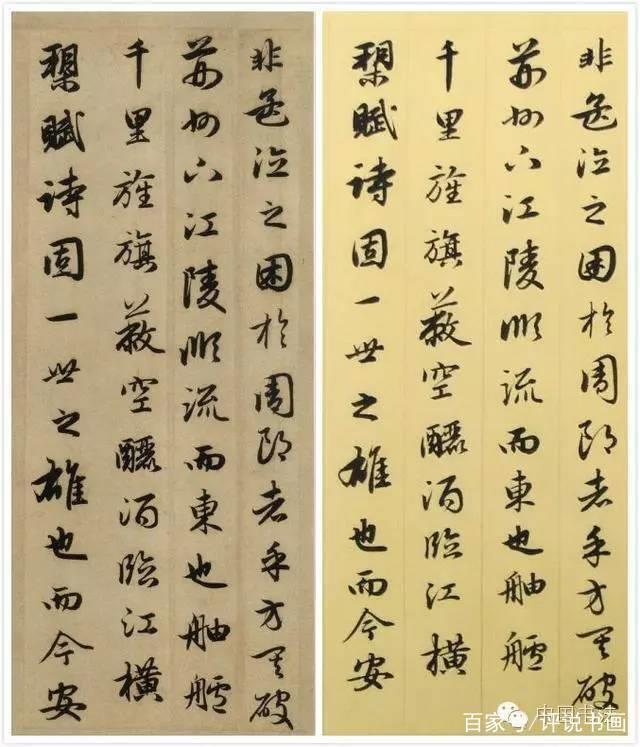 非孟德之困於周郎者乎方其破
荊州下江陵順流而東也舳艫
千里旌旗蔽空釃酒臨江橫
槊賦詩固一世之雄也而今安
非孟德之困於周郎者乎方其破
荊州下江陵順流而東也舳艫
千里旌旗蔽空釃酒臨江橫
槊賦詩固一世之雄也而今安
中国书法
百家号/评说书画